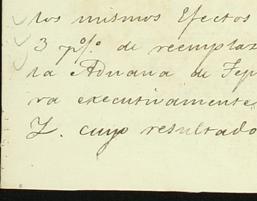 los mismos Efectos
3 p% de reemplaz
la Aduana de Tep
va executivamente
Z. cuyo resultado